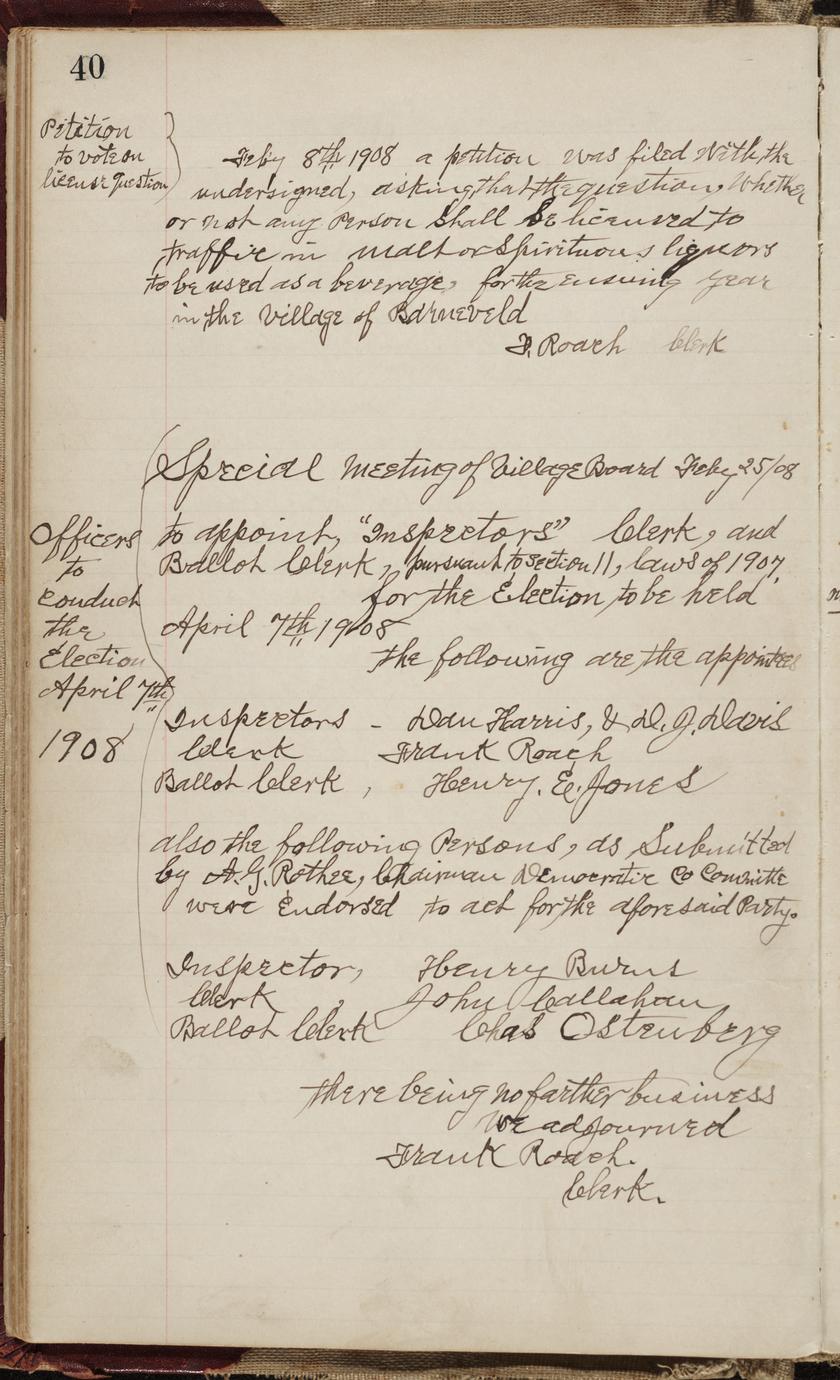 40
Petition
to vote on
license question
Feby 8th 1908 a petition was filed with the
undersigned, asking that the question, Whether
or not any Person Shall be licensed to
traffic in malt or Spirituous liquors
to be used as a beverage, for the ensuing year
in the Village of Barneveld
F. Roach Clerk
Special Meeting of Village Board Feby 25/08
Officers
to
conduct
the
Election
April 7th
1908
to appoint, "Inspectors" Clerk, and
Ballot Clerk, pursuant to section 11, laws of 1907,
for the Election to be held
April 7th 1908
the following are the appointees
Inspectors - Dan Harris, & D. J. Davis
Clerk Frank Roach
Ballot Clerk, Henry. E. Jones
also the following Persons, as Submitted
by A. G. Rothee, Chairman Democratic Co Committe
were Endorsed to act for the aforesaid Party.
Inspector, Henry Burns
Clerk, John Callahan
Ballot Clerk Chas Ostenberg
there being no farther business
we adjourned
Frank Roach.
Clerk.